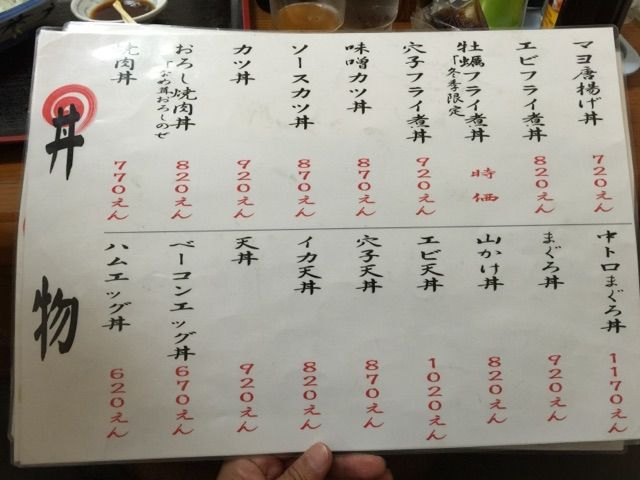 丼物
マヨ唐揚げ丼 720えん
エビフライ煮丼 820えん
牡蠣フライ煮丼 時価
「冬季限定
穴子フライ煮丼 920えん
味噌カツ丼 870えん
ソースカツ丼 870えん
カツ丼 920えん
おろし焼肉丼 820えん
焼肉丼 770えん
中トロまぐろ丼 1170えん
まぐろ丼 920えん
山かけ丼 820えん
エビ天丼 1020えん
穴子天丼 870えん
イカ天丼 820えん
天丼 920えん
ベーコンエッグ丼 670えん
ハムエッグ丼 620えん